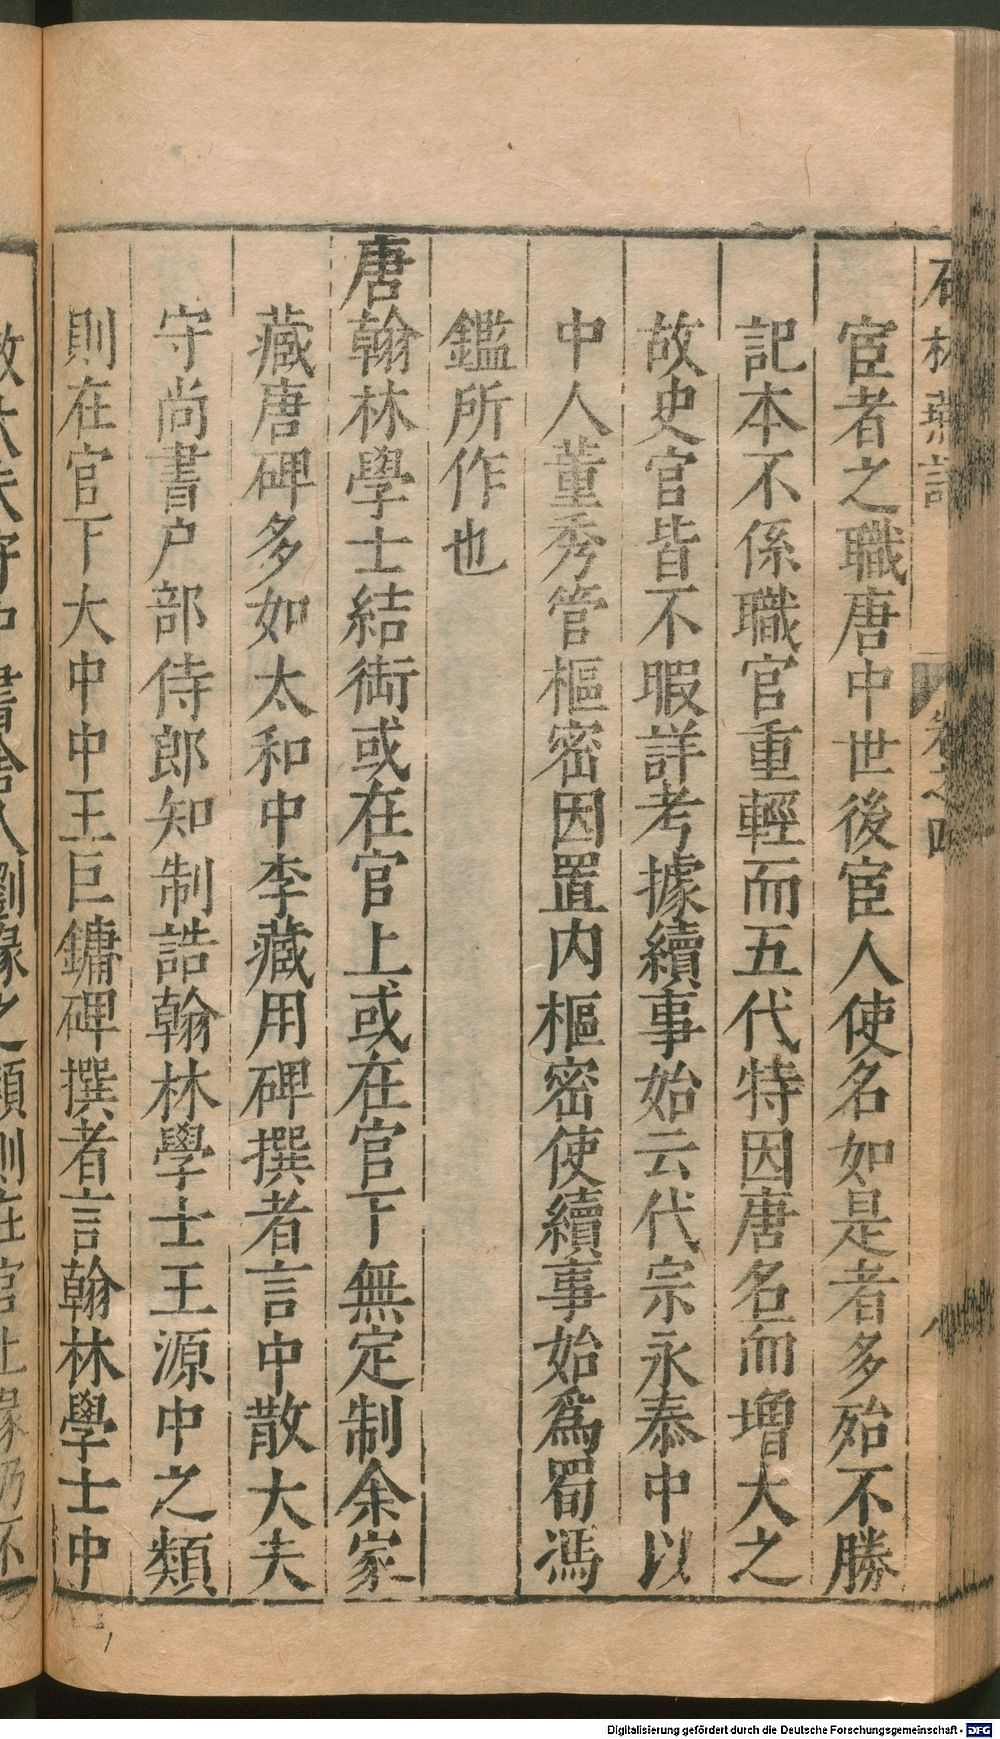 石林燕語
卷之四
八
宦者之職唐中世後宦人使名如是者多殆不勝
記本不係職官重輕而五代特因唐名而增大之
故史官皆不暇詳考據續事始云代宗永泰中以
中人董秀管樞密因置内樞密使續事始爲蜀馮
鑑所作也
唐翰林學士結銜或在官上或在官下無定制余家
藏唐碑多如太和中李藏用碑撰者言中散大夫
守尚書户部侍郎知制誥翰林學士王源中之類
則在官下大中中王巨鏞碑撰者言翰林學士中
散大夫守中書舍人劉瑑之類則在官上瑑仍不
Digitalisierung gefördert durch die Deutsche Forschungsgemeinschaft - DFG